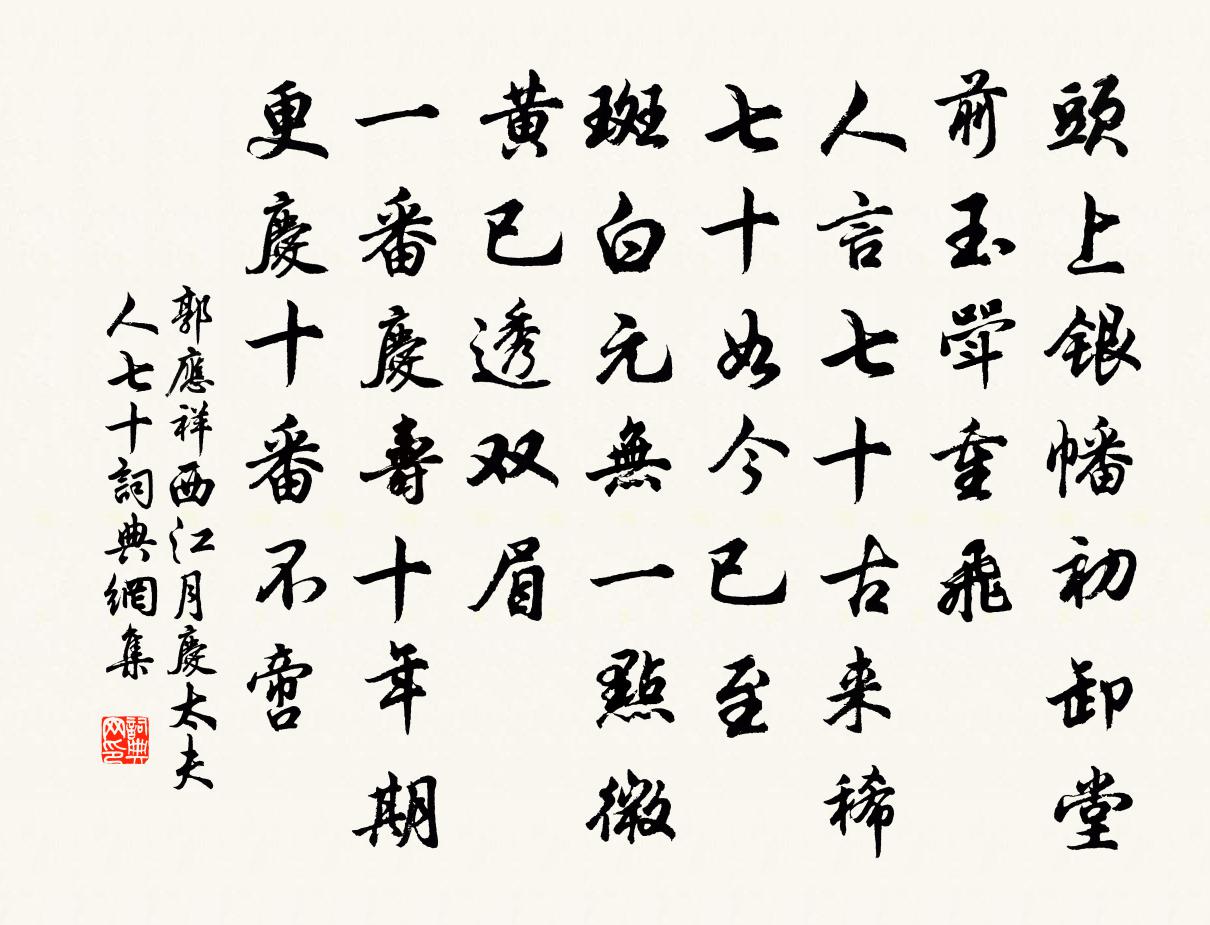 頭上銀幡初卸堂
前玉斝重飛
人言七十古来稀
七十如今已至
斑白元無一點微
黃已透双眉
一番慶壽十年期
更慶十番不啻
郭應祥西江月慶太夫
人七十詞典網集
詞典网印